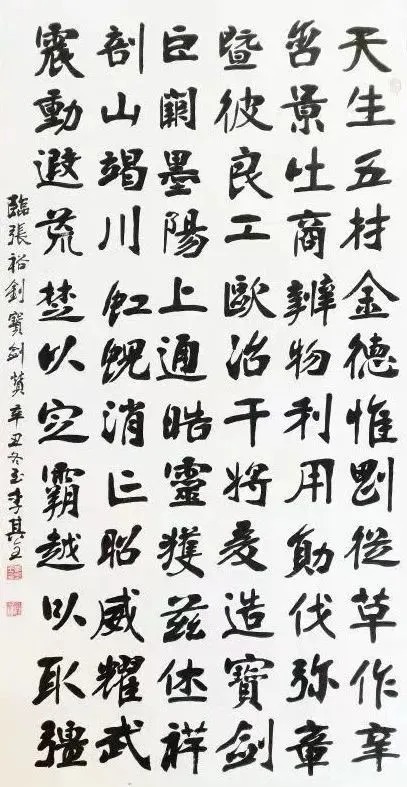 天生五材金德惟剛從草作辛
含景吐商辨物利用勛伐弥章
暨彼良工歐冶干將爰造寶劍
巨闕墨陽上通皓靈獲茲休祥
剖山竭川虹蜺消亡昭威耀武
震動遐荒楚以定霸越以取疆
臨張裕釗寶劍贊辛丑冬至李其